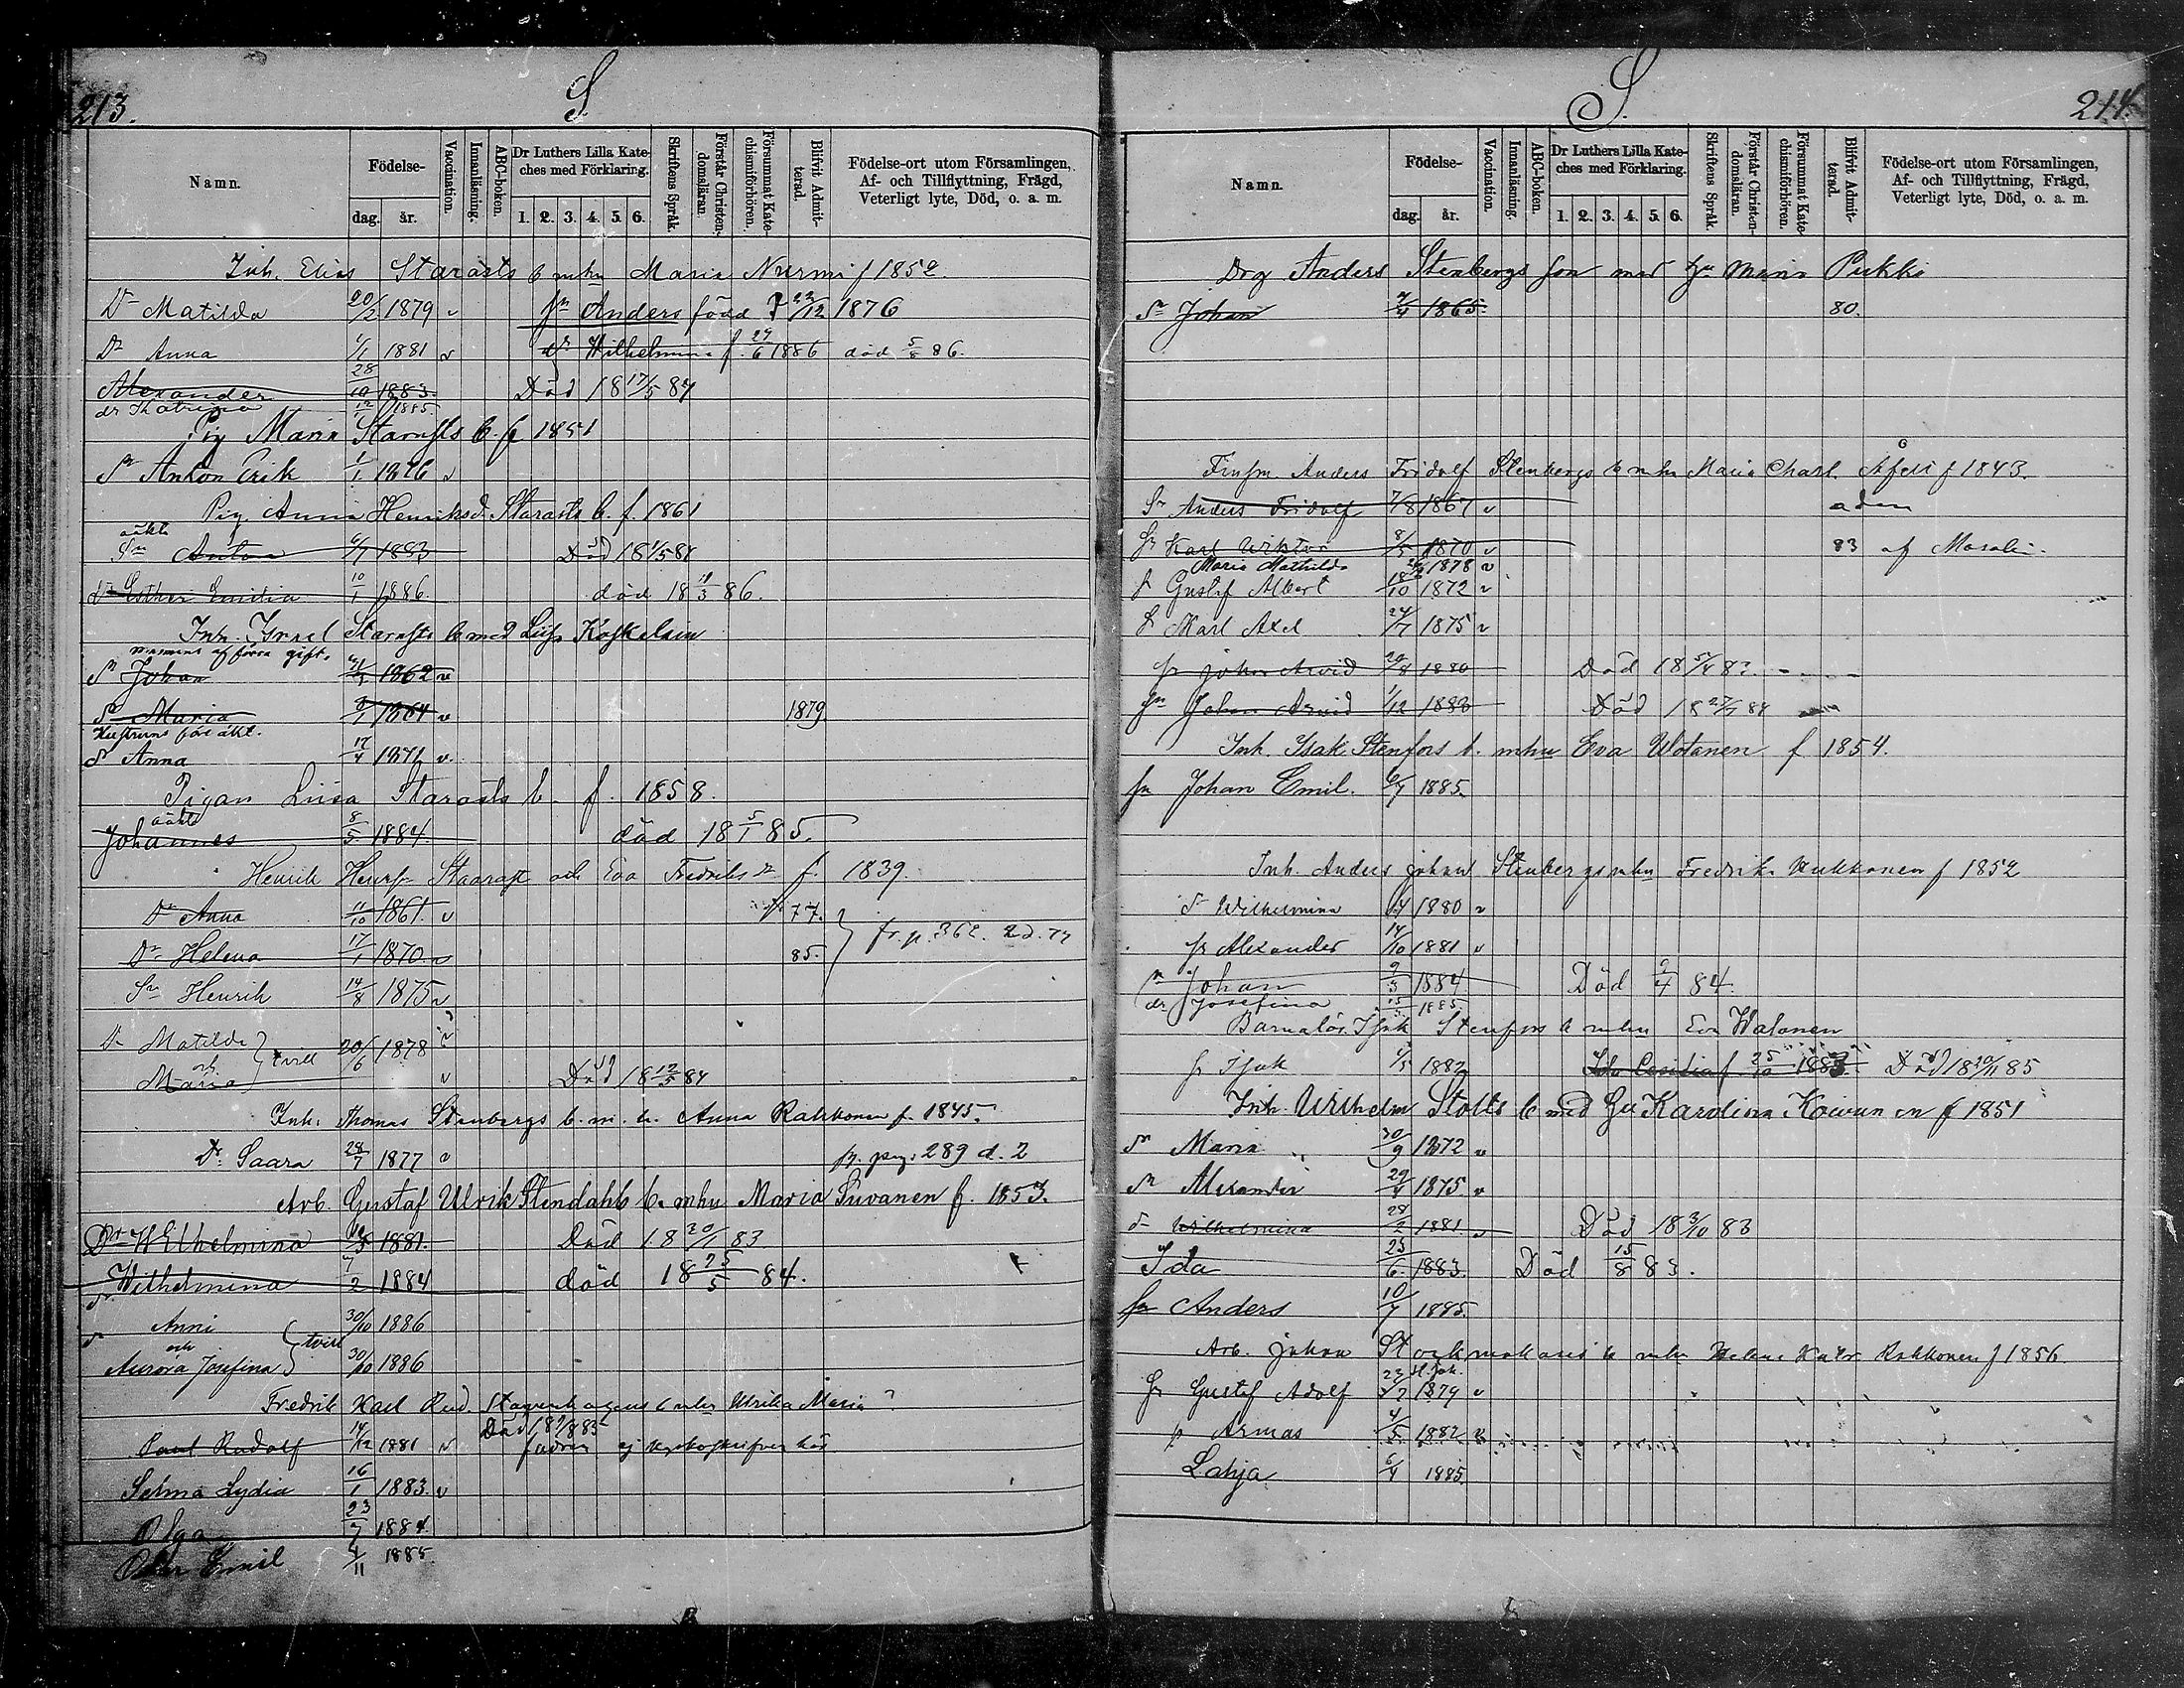 213.
S.
Namn.
Födelse-
dag.
år.
Vaccination.
Innanläsning.
ABC-boken.
Dr Luthers Lilla Kate-
ches med Förklaring.
1. 2. 3. 4. 5. 6.
Skriftens Språk.
Förstår Christen-
domsläran.
Försummat Kate-
chismiförhören.
Blifvit Admit-
terad.
Födelse-ort utom Församlingen,
Af- och Tillflyttning, Frägd,
Veterligt lyte, Död, o. a. m.
Inh. Elias Starasts b mhu Maria Nurmi f 1852
Dr Matilda 20/2 1879 v sn Anders född d 22/12 1876
Dr Anna 1/1 1881 v dr Wilhelmina f. 29/6 1886 död 5/8 86.
Alexander 28/10 1883. Död 18 17/5 84
dr Katrina 12/1 1885
Pig Maria Starasts b. f 1851
Sn Anton Erik 1/1 1876 v
Pig. Anna Henriksd. Starasts b. f. 1861
oäkta
Sn Anton 6/7 1883 Död 18 1/5 84
dr Esther Emilia 10/1 1886. död 18 11/3 86.
Inh. Israel Starasts b med Lisa Koskelain
mannens af förra gift.
Sn Johan 1862 v
Dr Maria 1864 v 1879
Hustruns före äkt.
d Anna 17/4 1871 v.
Pigan Lisa Starasts b. f. 1858.
oäkta
Johannes 8/5 1884. död 18 5/1 85.
Henrik Henrss Staarast och Eva Fredriks dr f. 1839.
Dr Anna 11/10 1861. v 77.
Dr Helena 17/1 1870. v 85. fr. p. 362.
Sn Henrik 14/8 1875 v
Dr Matilda 20/6 1878 v
och tvill
Maria v Död 18 12/5 84
Inh. Thomas Stenbergs b. m. h. Anna Rakkonen f. 1845.
Dr Saara 28/7 1877 v fr. pag. 289 d. 2
Arb. Gustaf Ulrik Stendahls b. mhu Maria Suvanen f. 1853.
Dr Wilhelmina 1881. Död 18 20/1 83
dr Wilhelmina 7/2 1884 död 18 25/5 84.
d Anni 30/10 1886
och tvill
Aurora Josefina 30/10 1886
Fredrik Karl Rud. Stavenhagens b mhu Ulrika Maria
Paul Rudolf 14/12 1881 v
Selma Lydia 16/1 1883. v
Olga 23/7 1884
Emil 1885.
214.
S.
Namn.
Födelse-
dag.
år.
Vaccination.
Innanläsning.
ABC-boken.
Dr Luthers Lilla Kate-
ches med Förklaring.
1. 2. 3. 4. 5. 6.
Skriftens Språk.
Förstår Christen-
domsläran.
Försummat Kate-
chismiförhören.
Blifvit Admit-
terad.
Födelse-ort utom Församlingen,
Af- och Tillflyttning, Frägd,
Veterligt lyte, Död, o. a. m.
Drg Anders Stenbergs son med hu Maria Pukki
Sn Johan 1865. 80.
Anders Fridolf Stenbergs b mhu Maria Charl. f 1843.
Sn Anders Fridolf 7/8 1867 v
Sn Karl Wiktor 8/5 1870 v 83
Maria Mathilda 1878 v
s Gustaf Albert 18/10 1872 v
s Karl Axel 24/7 1875 v
sn Johan Arvid 20/8 1880 Död
sn Johan Arvid 1/12 1883 Död 18 27/7 84
Inh. Isak Stenfors b. mhu Eva Wotanen f 1854.
sn Johan Emil. 1885.
Inh. Anders Johan Stenbergs mhu Fredrika Kukkonen f 1852
dr Wilhelmina 1880 v
sn Alexander 14/10 1881 v
sn Johan 9/3 1884 Död 2/4 84.
dr Josefina 1885
Barnalös. Isak Stenfors b mhu Eva Walonen
sn Isak 1/5 1882 Ida Cecilia f 25/10 1883. Död 18 20/11 85
Inh. Wilhelm Stolts b med hu Karolina Koivunen f 1851
dr Maria 30/9 1872 v
sn Alexander 29/4 1875 v
dr Wilhelmina 28/2 1881. v Död 18 3/10 83
Ida 23/6 1883. Död 15/8 83.
sn Anders 10/7 1885.
Arb. Johan Stockmakaris b mhu Helena Katr. Rakkonen f 1856.
Gustaf Adolf 1879 v
Armas 4/5 1882 v
Lahja 5/4 1885.